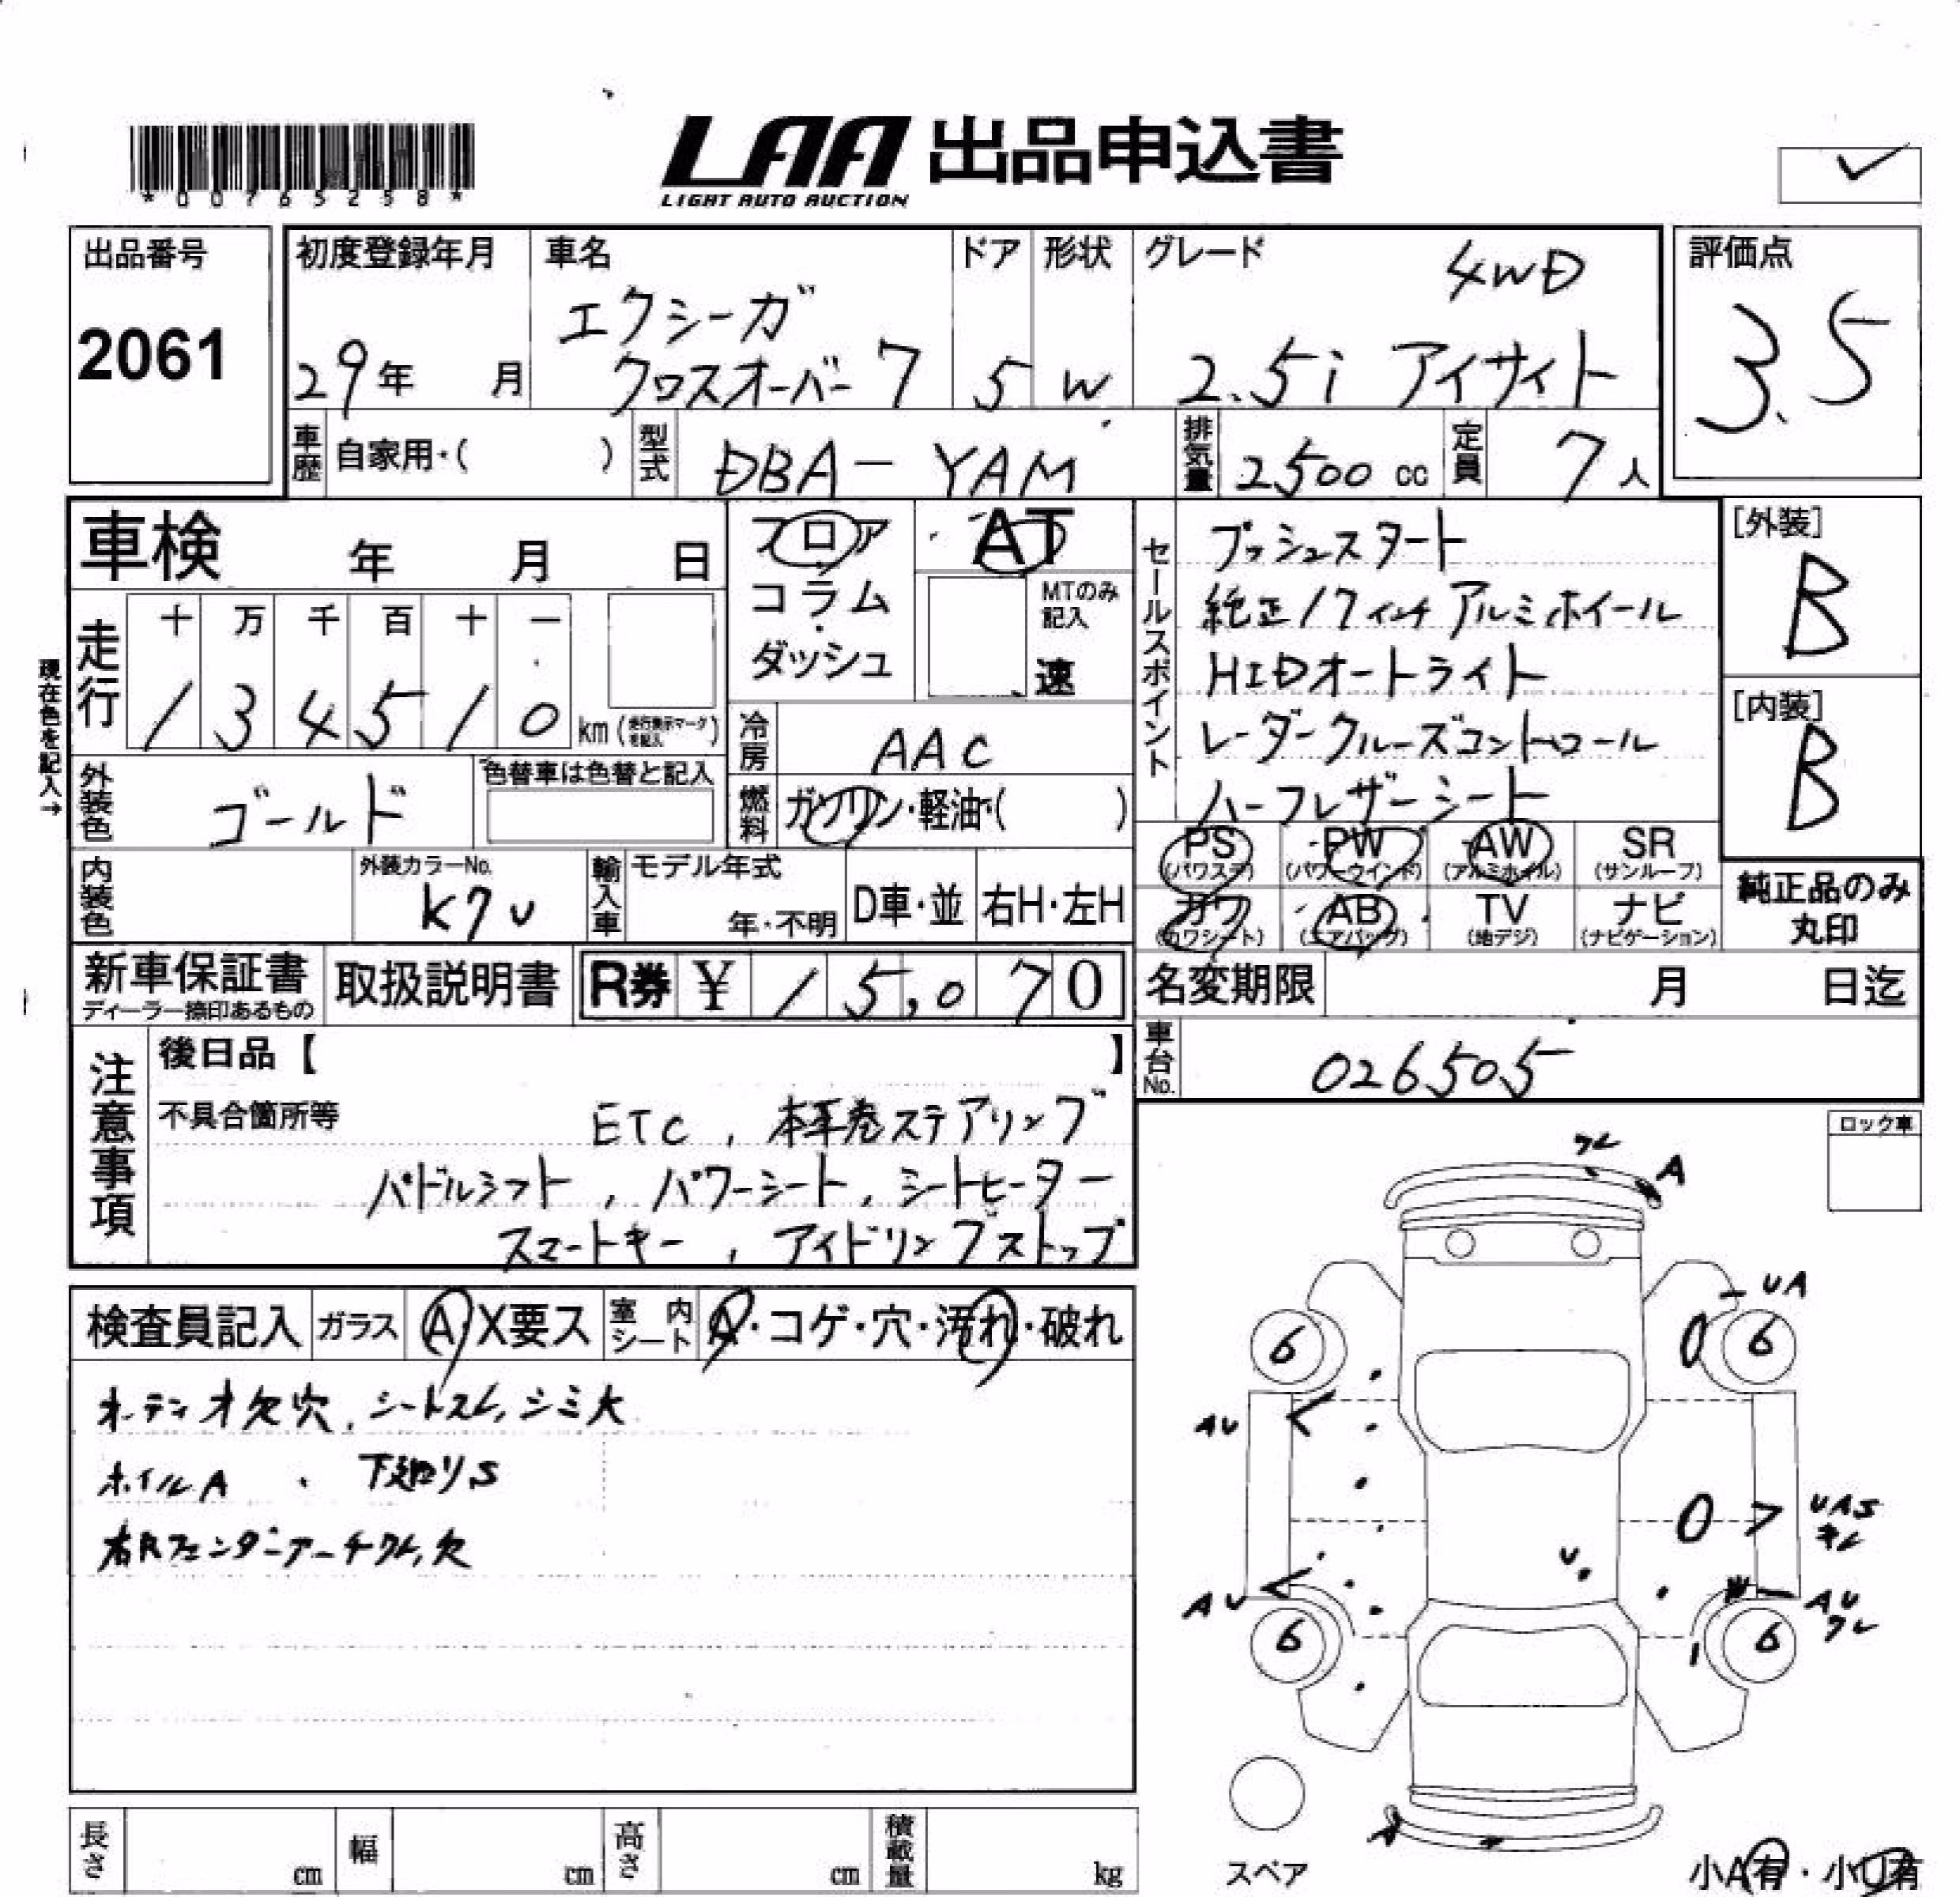 *00765258*
LAA 出品申込書
LIGHT AUTO AUCTION
出品番号
2061
初度登録年月
29年 月
車名
エクシーガ
クロスオーバー7
ドア
5
形状
W
グレード
4WD
2.5i アイサイト
評価点
3.5
車歴 自家用・( )
型式 DBA-YAM
排気量 2500 cc
定員 7人
車検 年 月 日
フロア
コラム
・
ダッシュ
AT
MTのみ
記入
速
セールスポイント
プッシュスタート
純正17インチアルミホイール
HIDオートライト
レーダークルーズコントロール
ハーフレザーシート
[外装]
B
[内装]
B
現在色を記入→
走行
十 万 千 百 十 一
1 3 4 5 1 0 km (走行表示マークを記入)
冷房 AAC
外装色 ゴールド
色替車は色替と記入
燃料 ガソリン・軽油・( )
PS (パワステ)
PW (パワーウインド)
AW (アルミホイル)
SR (サンルーフ)
カワ (カワシート)
AB (エアバッグ)
TV (地デジ)
ナビ (ナビゲーション)
純正品のみ
丸印
内装色
外装カラーNo.
K7U
輸入車
モデル年式
年・不明
D車・並
右H・左H
新車保証書
ディーラー捺印あるもの
取扱説明書
R券 ¥ 15,070
名変期限 月 日迄
車台No. 026505
注意事項
後日品【 】
不具合箇所等
ETC, 本革巻ステアリング
パドルシフト, パワーシート, シートヒーター
スマートキー, アイドリングストップ
ロック車
検査員記入
ガラス A・X要ス
室内シート A・コゲ・穴・汚れ・破れ
オーディオ欠穴, シートスレ, シミ大
ホイルA ・ 下廻りS
右Rフェンダーアーチワレ, 欠
ワレ
A
UA
6
6
AU
UAS
キレ
U
AU
AU
ワレ
6
6
A
スペア
小A有・小U有
長さ cm
幅 cm
高さ cm
積載量 kg